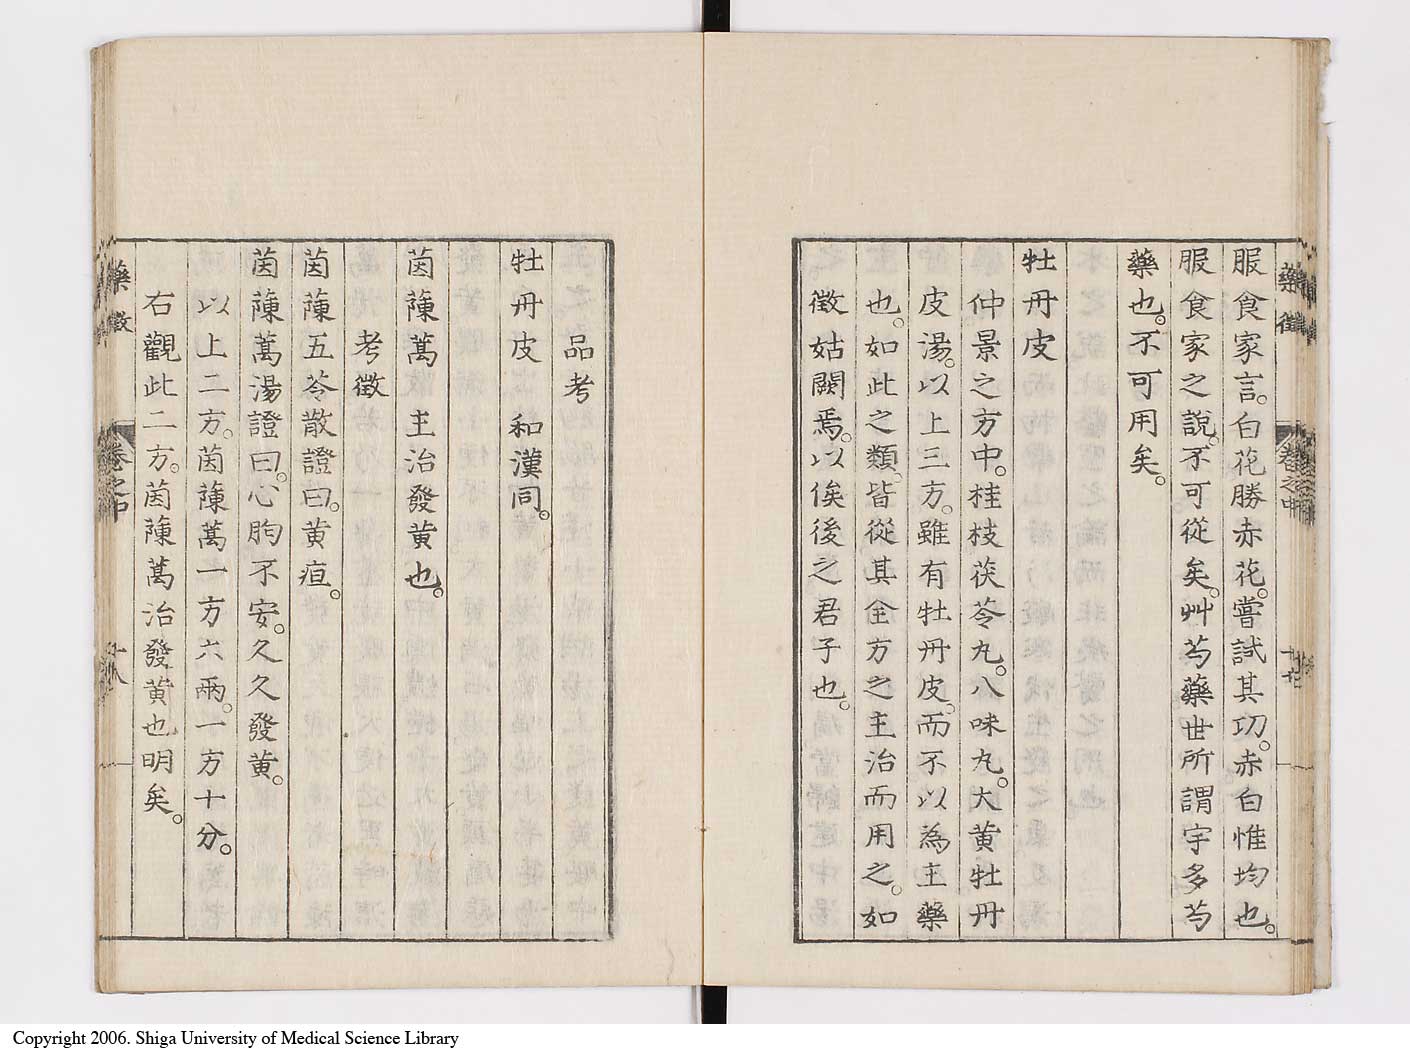 藥徵
卷之中
服食家言。白花勝赤花。嘗試其功。赤白惟均也。
服食家之說。不可從矣。艸芍藥世所謂宇多芍
藥也。不可用矣。
牡丹皮
仲景之方中。桂枝茯苓丸。八味丸。大黄牡丹
皮湯。以上三方。雖有牡丹皮。而不以爲主藥
也。如此之類。皆從其全方之主治而用之。如
徵姑闕焉。以俟後之君子也。
品考
牡丹皮 和漢同。
茵蔯蒿 主治發黄也。
考徵
茵蔯五苓散證曰。黄疸。
茵蔯蒿湯證曰。心胸不安。久久發黄。
以上二方。茵蔯蒿一方六兩。一方十分。
右觀此二方。茵蔯蒿治發黄也明矣。
藥徵
卷之中
十八
Copyright 2006. Shiga University of Medical Science Library